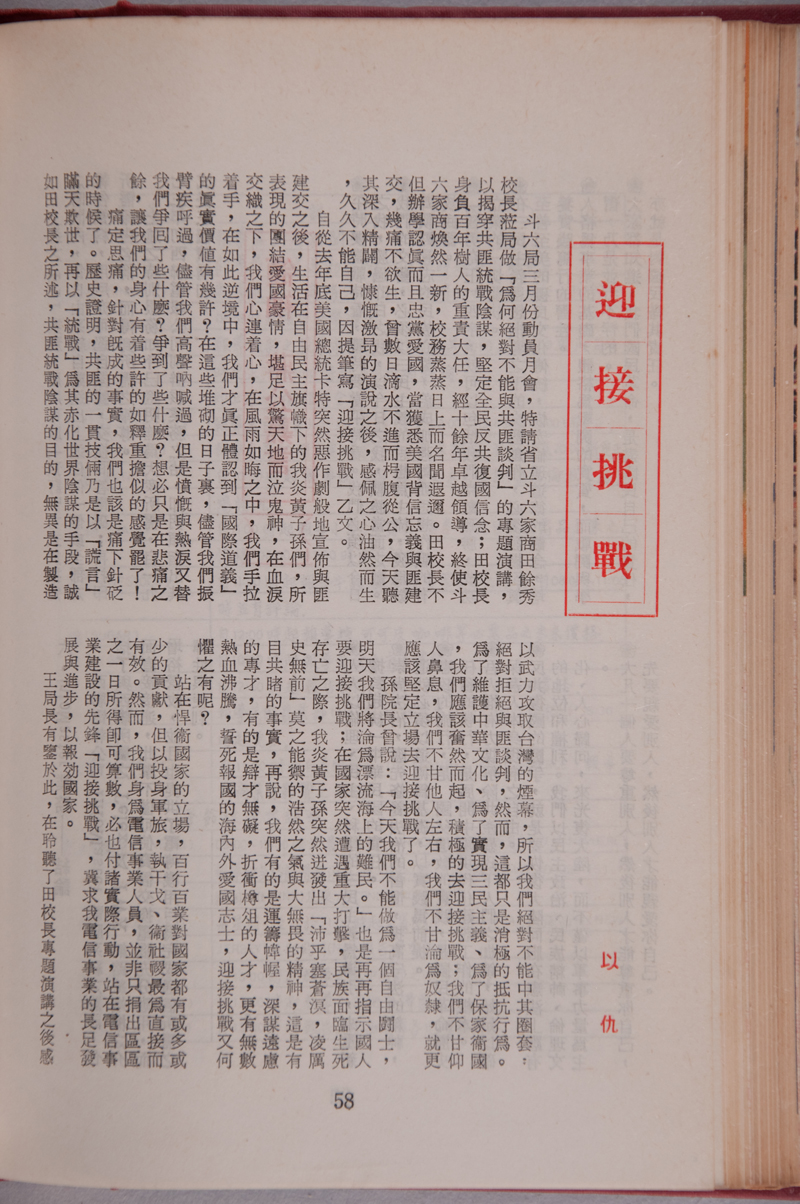 迎接挑戰
以仇
斗六局三月份動員月會，特請省立斗六家商田餘秀
校長蒞局做「爲何絕對不能與共匪談判」的專題演講，
以揭穿共匪統戰陰謀，堅定全民反共復國信念；田校長
身負百年樹人的重責大任，經十餘年卓越領導，終使斗
六家商煥然一新，校務蒸蒸日上而名聞遐邇。田校長不
但辦學認眞而且忠黨愛國，當獲悉美國背信忘義與匪建
交，幾痛不欲生，曾數日滴水不進而枵腹從公，今天聽
其深入精闢，慷慨激昂的演說之後，感佩之心油然而生
，久久不能自己，因提筆寫「迎接挑戰」乙文。
自從去年底美國總統卡特突然惡作劇般地宣佈與匪
建交之後，生活在自由民主旗幟下的我炎黃子孫們，所
表現的團結愛國豪情，堪足以驚天地而泣鬼神，在血淚
交織之下，我們心連着心，在風雨如晦之中，我們手拉
着手，在如此逆境中，我們才眞正體認到「國際道義」
的眞實價値有幾許？在這些堆砌的日子裏，儘管我們振
臂疾呼過，儘管我們高聲吶喊過，但是憤慨與熱淚又替
我們爭回了些什麼？爭到了些什麼？想必只是在悲痛之
餘，讓我們的身心有着些許的如釋重擔似的感覺罷了！
痛定思痛，針對旣成的事實，我們也該是痛下針砭
的時候了。歷史證明，共匪的一貫技倆乃是以「謊言」
瞞天欺世，再以「統戰」爲其赤化世界陰謀的手段，誠
如田校長之所述，共匪統戰陰謀的目的，無異是在製造
以武力攻取台灣的煙幕，所以我們絕對不能中其圈套；
絕對拒絕與匪談判，然而，這都只是消極的抵抗行爲。
爲了維護中華文化、爲了實現三民主義、爲了保家衞國
，我們應該奮然而起，積極的去迎接挑戰；我們不甘仰
人鼻息，我們不甘他人左右，我們不甘淪爲奴隸，就更
應該堅定立場去迎接挑戰了。
孫院長曾說：「今天我們不能做爲一個自由鬪士，
明天我們將淪爲漂流海上的難民。」也是再再指示國人
要迎接挑戰；在國家突然遭遇重大打擊，民族而臨生死
存亡之際，我炎黃子孫突然迸發出「沛乎塞蒼溟，凌厲
史無前」莫之能禦的浩然之氣與大無畏的精神，這是有
目共睹的事實，再說，我們有的是運籌幃幄，深謀遠慮
的專才，有的是辯才無礙，折衝樽俎的人才，更有無數
熱血沸騰，誓死報國的海內外愛國志士，迎接挑戰又何
懼之有呢？
站在悍衞國家的立場，百行百業對國家都有或多或
少的貢獻，但以投身軍旅，執干戈、衞社稷最爲直接而
有效。然而，我們身爲電信事業人員，並非只捐出區區
之一日所得卽可算數，必也付諸實際行動，站在電信事
業建設的先鋒「迎接挑戰」，冀求我電信事業的長足發
展與進步，以報効國家。
王局長有鑒於此，在聆聽了田校長專題演講之後感
58